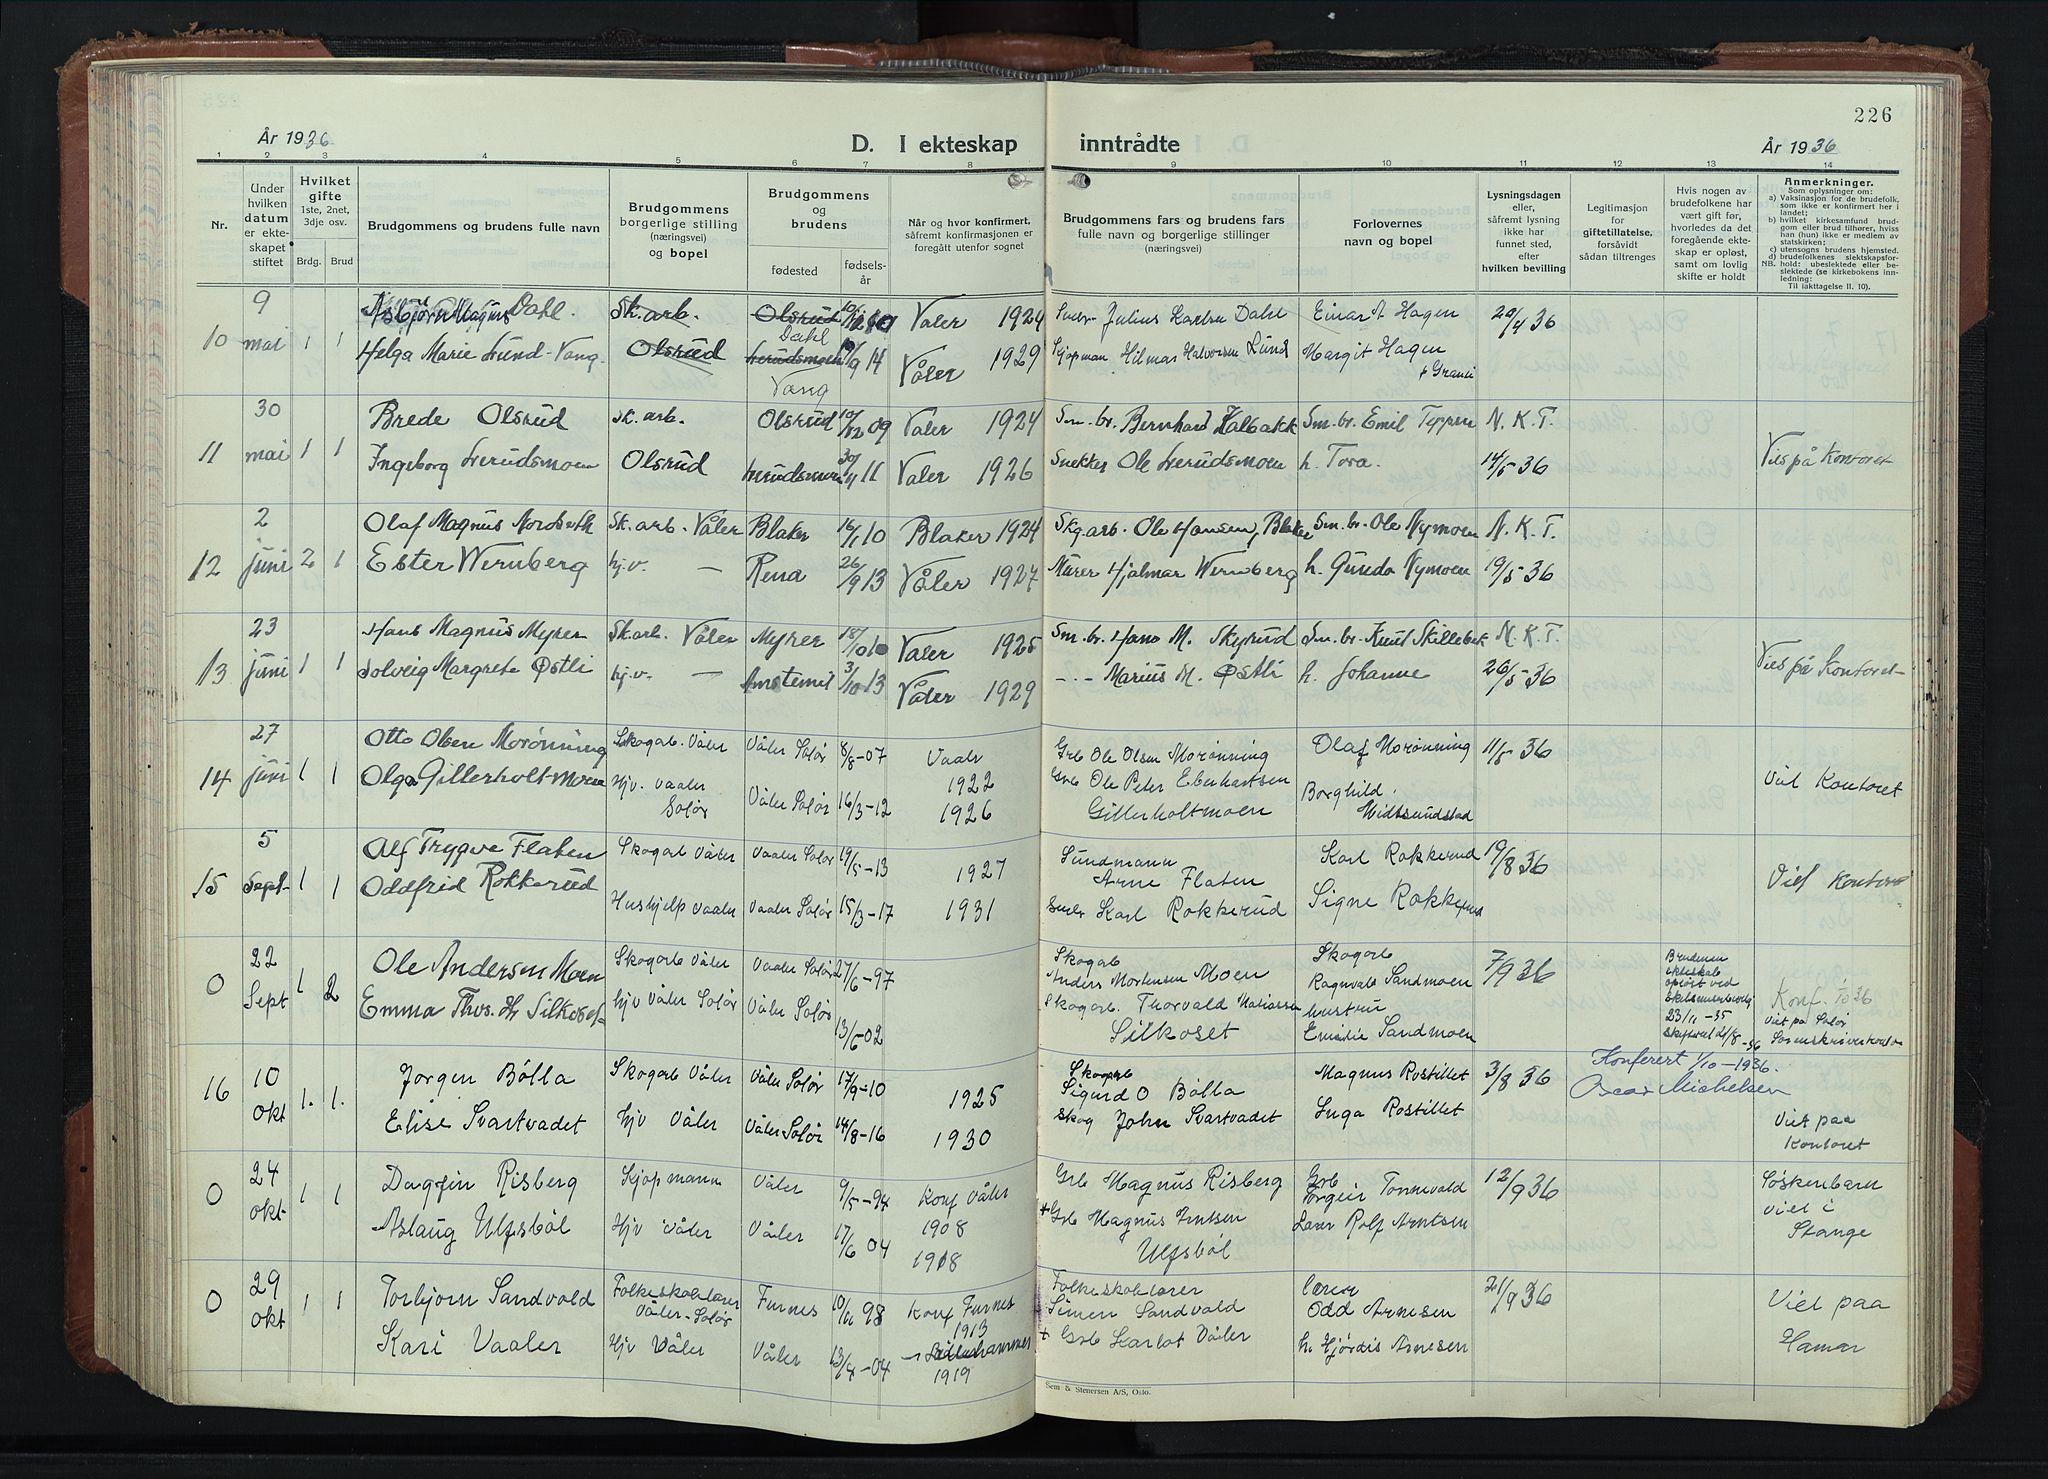 226
År 1936
D. I ekteskap inntrådte
År 1936
1 2 3 4 5 6 7 8 9 10 11 12 13 14
Nr.
Under hvilken datum er ekteskapet stiftet
Hvilket gifte
1ste, 2net, 3dje osv.
Brdg. Brud
Brudgommens og brudens fulle navn
Brudgommens borgerlige stilling (næringsvei) og bopel
Brudgommens og brudens
fødested
fødselsår
Når og hvor konfirmert, såfremt konfirmasjonen er foregått utenfor sognet
Brudgommens fars og brudens fars fulle navn og borgerlige stillinger (næringsvei)
Forlovernes navn og bopel
Lysningsdagen eller, såfremt lysning ikke har funnet sted, efter hvilken bevilling
Legitimasjon for giftetillatelse, forsåvidt sådan tiltrenges
Hvis nogen av brudefolkene har vært gift før, hvorledes da det foregående ekteskap er opløst, samt om lovlig skifte er holdt
Anmerkninger.
Som oplysninger om:
a) Vaksinasjon for de brudefolk, som ikke er konfirmert her i landet;
b) hvilket kirkesamfund brudgom eller brud tilhører, hviss han (hun) ikke er medlem av statskirken;
c) utensogns brudens hjemsted.
d) brudefolkenes slektskapsforhold: ubeslektede eller beslektede (se kirkebokens innledning:
NB.
Til iakttagelse II. 10).
10
9 mai
1 1
Asbjørn Magnus Dahl.
Helga Marie Lund-Vang.
Sk.arb.
Olsrud
Olsrud Dahl
Lerudsmoen
Vang
9 14
Våler 1924
Våler 1929
Julius Karlsen Dahl
Sjøpman Hilmar Halvorsen Lund
Einar A Hagen
Margit Hagen
20/4 36
11
30 mai
1 1
Brede Olsrud
Ingeborg Lerudsmoen
Sk. arb.
Olsrud
Olsrud 10/12 09
Lerudsmoen 11
Våler 1924
Våler 1926
Sm. br. Bernhard Kalbakk
Snekker Ole Lerudsmoen
Sm. br. Emil Teppen
h. Tora.
N. K. T.
14/5 36
Vies på kontoret
12
2 juni
2 1
Olaf Magnus Nordseth
Ester Wernberg
Sk. arb. Våler
hj.v. —
Blaker 16/1 10
Rena 26/9 13
Blaker 1924
Våler 1927
Skg.arb. Ole Hansen, Blaker
Murer Hjalmar Wernberg
Sm. br. Ole Nymoen
h. Gunda Nymoen
N. K. T.
19/5 36
13
23 juni
1 1
Hans Magnus Myrer
Solveig Margrete Østli
Sk.arb. Våler
hj.v. —
Myrer 18/10 10
3/10 13
Våler 1925
Våler 1929
Sm. br. Hans M. Skyrud
- " - Marius M. Østli
Sm. br. Knut Skillebek
h. Johanne
N. K. T.
26/5 36
Vies på Kontoret
14
27 juni
1 1
Otto Olsen Morønning
Olga Gillerholtmoen
Skogarb. Våler
Hjv. Vaaler Solør
Våler Solør 8/8-07
Våler Solør 16/3-12
Vaaler
1922
1926
Grb Ole Olsen Morønning
Grb Ole Peter Eberhartsen
Gillerholtmoen
Olaf Morønning
Borghild Midtsundstad
11/5 36
Viet Kontoret
15
5 Sept.
1 1
Alf Trygve Flaten
Oddfrid Rokkerud
Skogarb Våler
Hushjelp Vaaler
Vaaler Solør 19/5-13
Vaaler Solør 15/3-17
1927
1931
Arne Flaten
Karl Rokkerud
Karl Rokkerud
Signe Rokkerud
19/8 36
Viet Kontoret
0
22 Sept
1 2
Ole Andersen Moen
Emma Silkoset
Skogarb Våler
hjv Våler Solør
Vaaler Solør 27/6-97
Våler Solør 13/6-02
Skogarb
Anders Mortensen Moen
Skogarb. Thorvald
Silkoset
Skogarb
Ragnvald Sandmoen
hustru
Emilie Sandmoen
7/9 36
Brudens
ekteskab
opløst ved
23/11-35
Konf. 1936
Viet på Solør
Sorenskriverkontor
16
10 Okt
1. 1.
Jørgen Bølla
Elise Svartvadet
Skogarb Våler
Hjv Våler
Våler Solør 17/9-10
Våler Solør 14/8-16
1925
1930
Skogarb
Sigurd O Bølla
Skog John Svartvadet
Magnus Rostillet
Inga Rostillet
3/8 36
Konferert 1/10-1936.
Oscar Michelsen
Viet paa
Kontoret
0
24 okt
1 1
Dagfin Risberg
Aslaug Ulfsbøl
Kjøpmann
Hjv Våler
Våler 9/5-94
Våler 17/6 04
Konf Våler
1908
1918
Grb Magnus Risberg
+ Grb Magnus Arntsen
Ulfsbøl
Grb
Torgeir Tornevald
Lærer Rolf Arntsen
12/9 36
Søskenbarn
viet i
Stange
0
29 okt
1 1
Torbjørn Sandvold
Kari Vaaler
Folkeskolelærer
Våler-Solør
Hjv Våler
Furnes 98
Våler 13/4-04
Konf Furnes
1913
1919
Folkeskolelærer
Simen Sandvold
+ Grb Karlot Våler
Lærer
Odd Arnesen
h. Hjørdis Arnesen
21/9 36
Viet paa
Hamar
Sem & Stenersen A/S, Oslo.